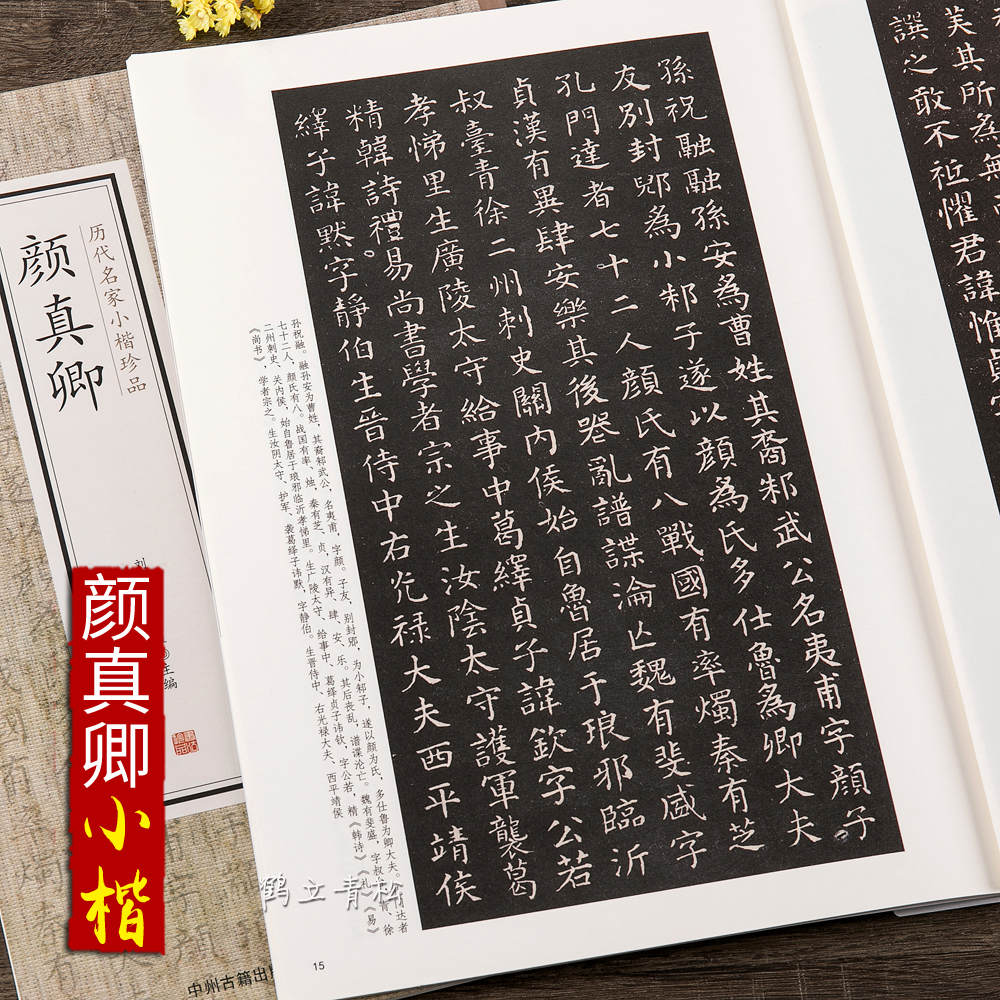 美其所為無
譔之敢不祗懼君諱惟貞字
孫祝融融孫安為曹姓其裔邾武公名夷甫字顏子
友別封郳為小邾子遂以顏為氏多仕魯為卿大夫
孔門達者七十二人顏氏有八戰國有率燭秦有芝
貞漢有異肆安樂其後喪亂譜諜淪亡魏有斐盛字
叔臺青徐二州刺史關內侯始自魯居于琅邪臨沂
孝悌里生廣陵太守給事中葛繹貞子諱欽字公若
精韓詩禮易尚書學者宗之生汝陰太守護軍襲葛
繹子諱默字靜伯生晉侍中右光祿大夫西平靖侯
孙祝融。融孙安为曹姓，其裔邾武公，名夷甫，字颜。子友，别封郳，为小邾子，遂以颜为氏，多仕鲁为卿大夫。门达者
七十二人，颜氏有八。战国有率、烛，秦有芝、贞，汉有异、肆、安、乐。其后丧乱，谱谍沦亡。魏有斐盛，字叔青、徐
二州刺史、关内侯，始自鲁居于琅邪临沂孝悌里。生广陵太守、给事中、葛绎贞子讳钦，字公若，精《韩诗》《礼》《易》
《尚书》，学者宗之。生汝阴太守、护军、袭葛绎子讳默，字静伯。生晋侍中、右光禄大夫、西平靖侯
15
历代名家小楷珍品
颜真卿
刘
主编
中州古籍出
颜真卿小楷
鹤立青松